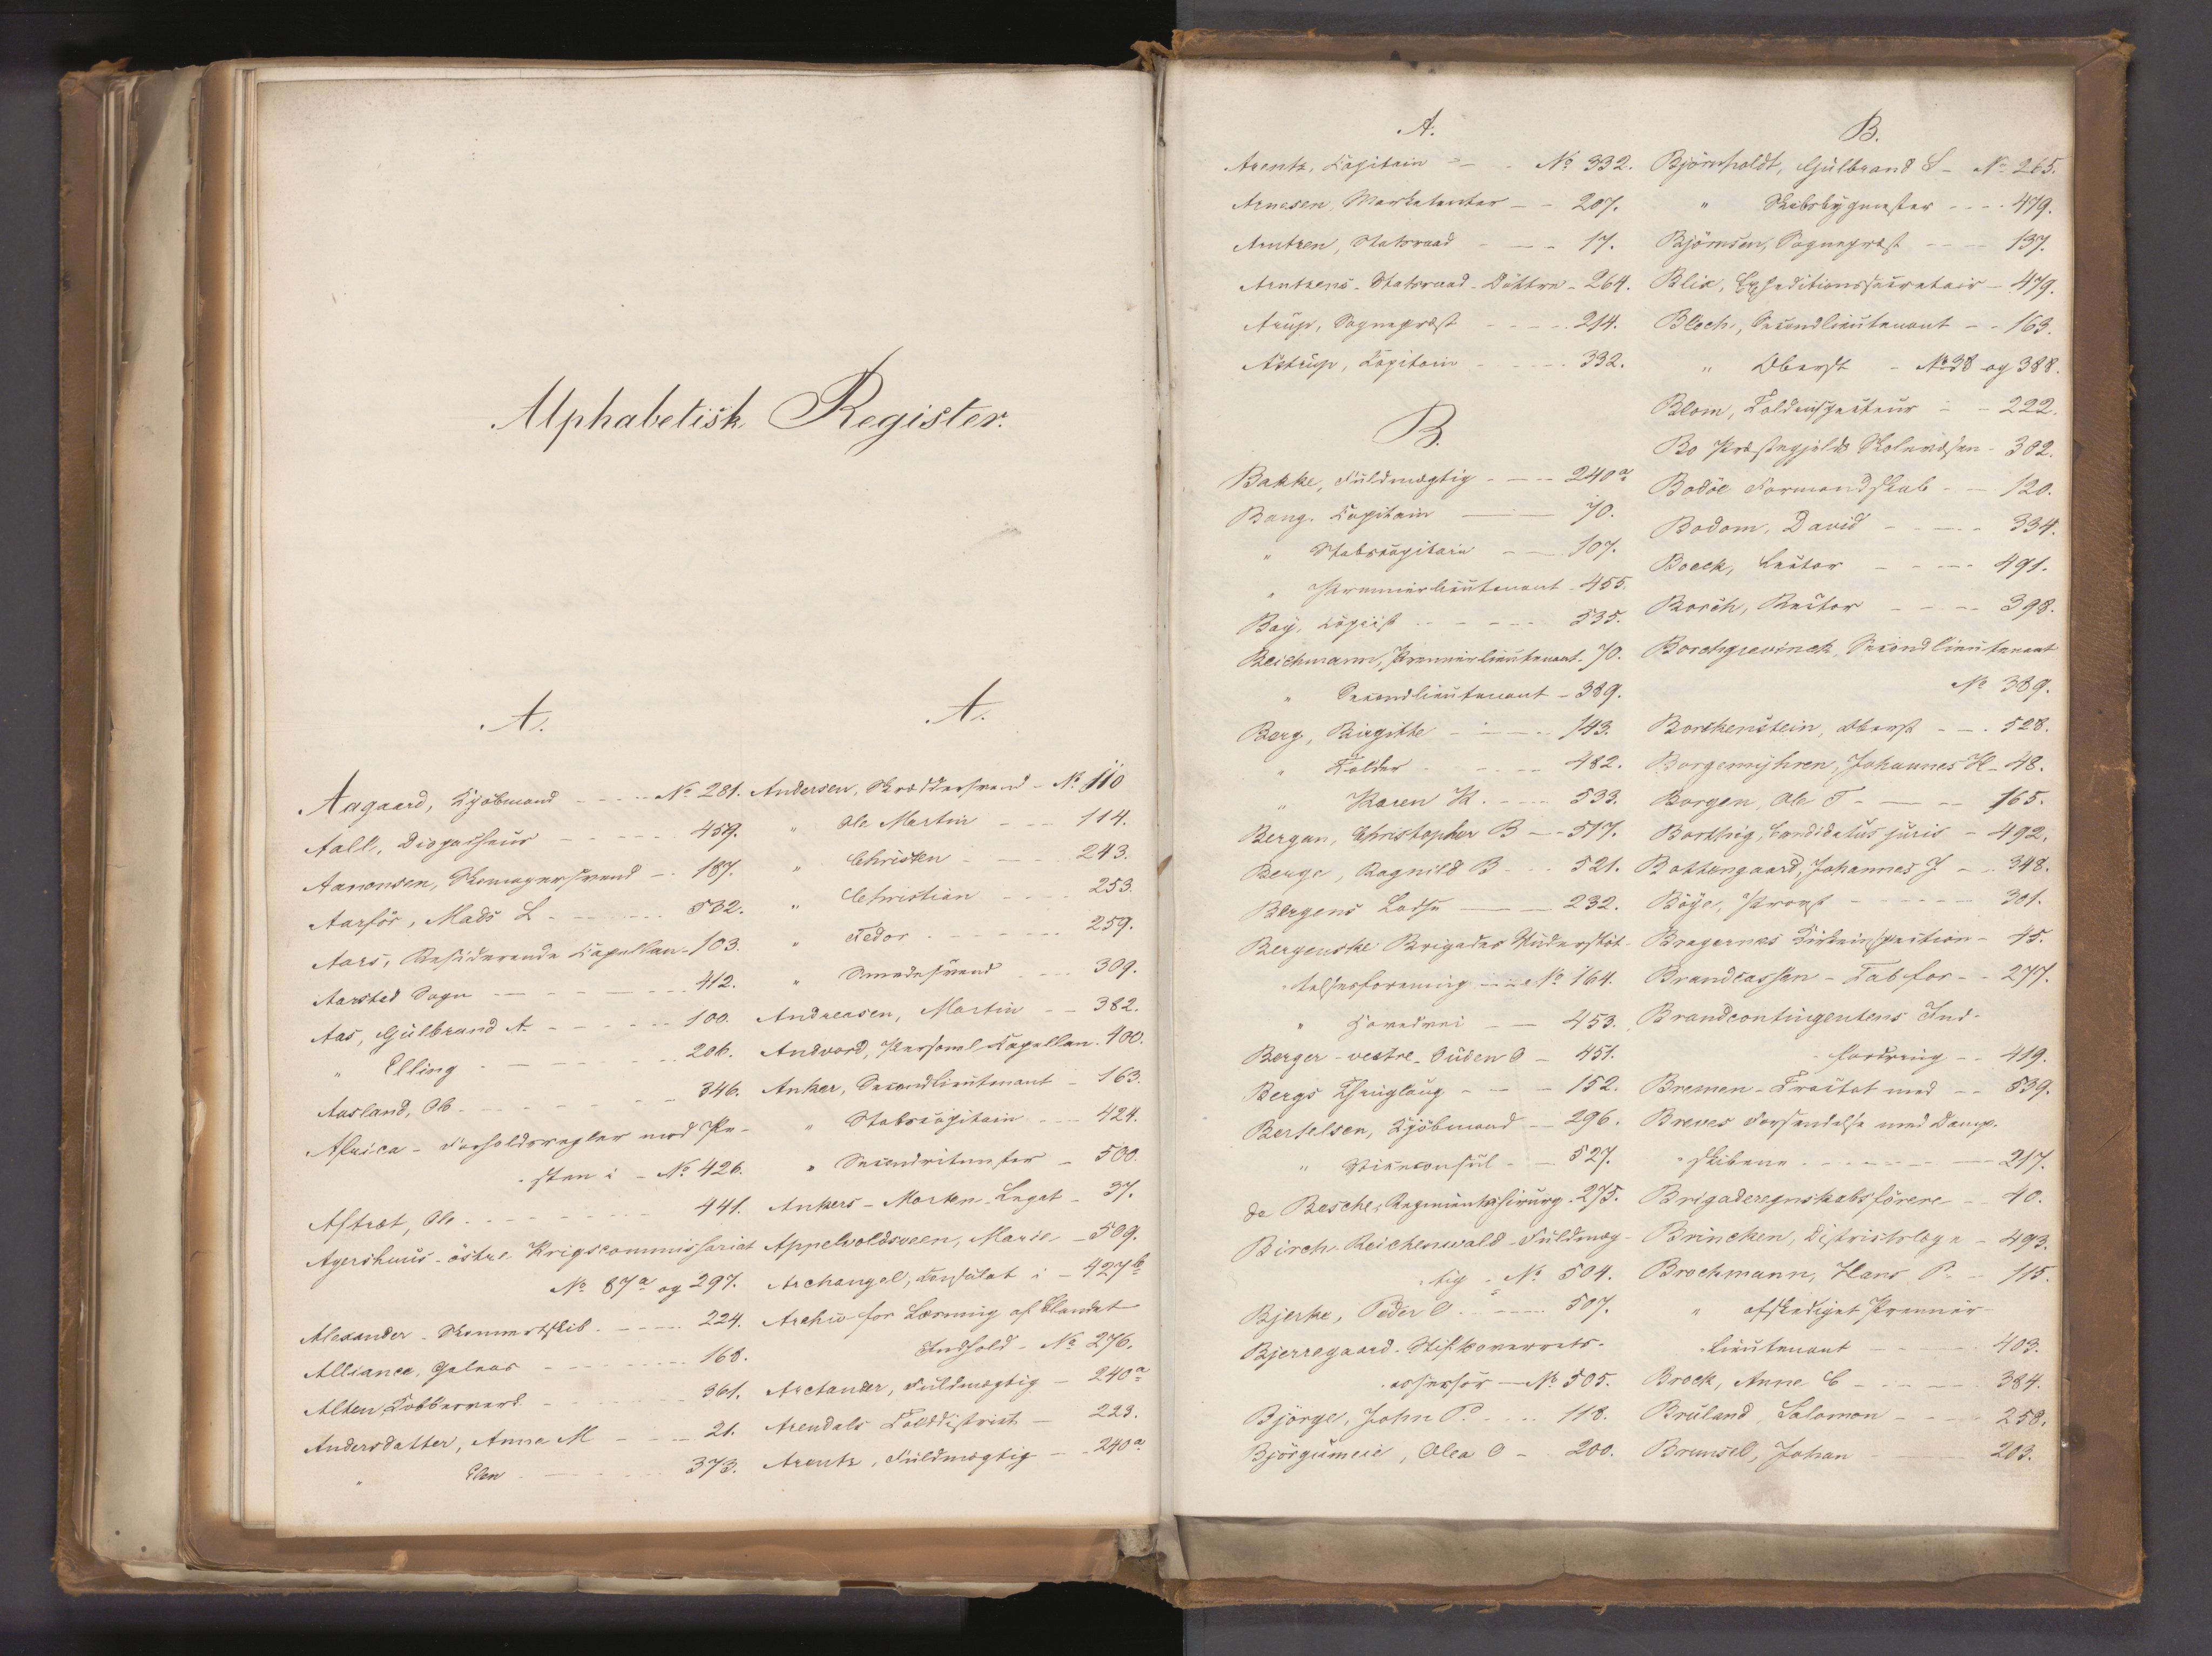 Alphabetisk Register.
A.
Aagaard, Kjöbmand - - - - No 281.
Aall, Dispacheur - - - - - 459.
Aanonsen, Skomagersvend - 187.
Aarför, Mads L - - - - - 532.
Aars, Residerende Capellan - 103.
Aarstad Sogn - - - - - 412.
Aas, Gülbrand A. - - - - - 100.
" Elling - - - - - 206.
Aasland, Ole - - - - - 346.
Africa - Forholdsregler mod Pe-
- sten i - No 426.
Aftret, Ole - - - - - 441.
Agershuus - östre Krigscommissariat
No 87a og 297.
Alexander - Skonnertskib - - - 224.
Alliance, Galeas - - - - - 168.
Alten Kobberverk - - - - - 361.
Andersdatter, Anna M - - - 21.
" Elen - - - - - 373.
A.
Andersen, Skræddersvend - No 110
" Ole Martin - - - 114.
" Christen - - - 243.
" Christian - - - 253.
" Fedor - - - - - 259.
" Smedesvend - - - 309.
Andreasen, Martin - - 382.
Andvord, Personel Capellan - 400.
Anker, Secondlieutenant - 163.
" Stabscapitain - - - 424.
" Secondritmester - 500.
Ankers - Morten - Legat - 37.
Appelvoldsveen, Marie - 509.
Archangel, Consulat i - 427b
Archiv for Læsning af blandet
Indhold - No 276.
Arctander, Fuldmægtig - 240a
Arendals Tolddistrict - 223.
Arentz, Fuldmægtig - - 240a
A.
Arentz, Capitain - - No 332.
Arnesen, Marketenter - - 207.
Arntzen, Statsraad - - - 17.
Arntzens - Statsraad - Döttre - 264.
Arup, Sognepræst - - - - 214.
Astrüp, Capitain - - - - 332.
B.
Bakke, Fuldmægtig - - - 240a
Bang, Capitain - - - 70.
" Stabscapitain - - - 107.
" Premierlieutenant - 455.
Bay, Copiist - - - - - 535.
Beichmann, Premierlieutenant - 70.
" Secondlieutenant - 389.
Berg, Birgitte - - - - 143.
" Tolder - - - - 482.
" Karen K. - - - 533.
Bergan, Christopher B - - 517.
Berge, Ragnild B - - - 521.
Bergens Lodse - - - 232.
Bergenske Brigades Understöt-
- telsesforening - - No 164.
" Hovedvei - - 453.
Berger - vestre - Guden O - 451.
Bergs Thinglaug - - - 152.
Bertelsen, Kjöbmand - - 296.
" Viceconsül - - 527.
de Besche, Regimentschirurg - 275.
Birch-Reichenwald - Fuldmæg-
tig - No 504.
Bjerke, Peder O. - - - 507.
Bjerregaard - Stiftsoverrets-
- assessor - No 505.
Björge, John P. - - - 118.
Olea O - 200.
B.
Björnholdt, Gülbrand S - No 265.
" Skibsbygmester - - - 479.
Björnsen, Sognepræst - - - 137.
Blix, Expeditionssecretair - 479.
Bloch, Secondlieutenant - - 163.
" Oberst - No 38 og 388.
Blom, Toldinspecteur - - 222.
Bo Præstegjelds Skolevæsen - 302.
Bodöe Formandskab - - 120.
Bodom, David - - - - 334.
Boeck, Lector - - - - 491.
Borch, Rector - - - - 398.
Borchgrevinck, Secondlieutenant
No 389.
Borchenstein, Oberst - - - 528.
Borgemyhren, Johannes H - 48.
Borgen, Ole T - - - - 165.
Borthig, Candidatus juris - 492.
Bottengaard, Johannes J - - 348.
Böye, Provst - - - - - 301.
Bragernes Kirkeinspection - 45.
Brandcassen - Tab for - - 277.
Brandcontingentens Ind-
- fordring - - 419.
Bremen - Tractat med - - 539.
Breves Forsendelse med Damp-
- skibene - - - - - 217.
Brigaderegnskabsförere - - 40.
Brincken, Districtslæge - 493.
Brochmann, Hans P. - - 115.
" afskediget Premier-
- lieutenant - - - 403.
Brock, Anne C - - - - 384.
Brüland, Salomon - - - 258.
Brunsel, Johan - - - 203.